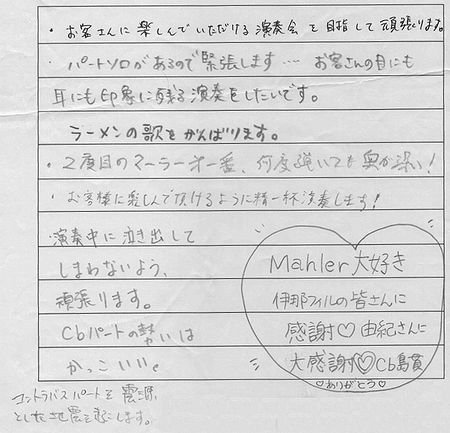 ・お客さんに楽しんでいただける演奏会を目指して頑張ります。
・パートソロがあるので緊張します… お客さんの目にも
耳にも印象に残る演奏をしたいです。
ラーメンの歌をがんばります。
・2度目のマーラー一番、何度弾いても奥が深い!
・お客様に楽しんで頂けるように精一杯演奏します!
演奏中に泣き出して
しまわないよう、
頑張ります。
Cbパートの勢いは
かっこいい。
Mahler大好き
伊那フィルの皆さんに
感謝♡由紀さんに
大感謝♡Cb島貫
♡ありがとう♡
コントラバスパートを震源
とした地震を起こします。